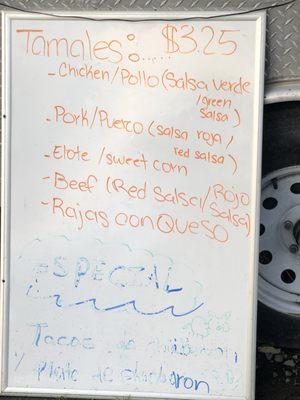 Tamales:..... $3.25
- Chicken/Pollo (Salsa Verde
/green
salsa)
- Pork/Puerco (salsa roja/
red salsa)
- Elote/sweet corn
- Beef (Red Salsa/Rojo
Salsa)
- Rajas con Queso
ESPECIAL
Tacos de
y Plato de chicharon